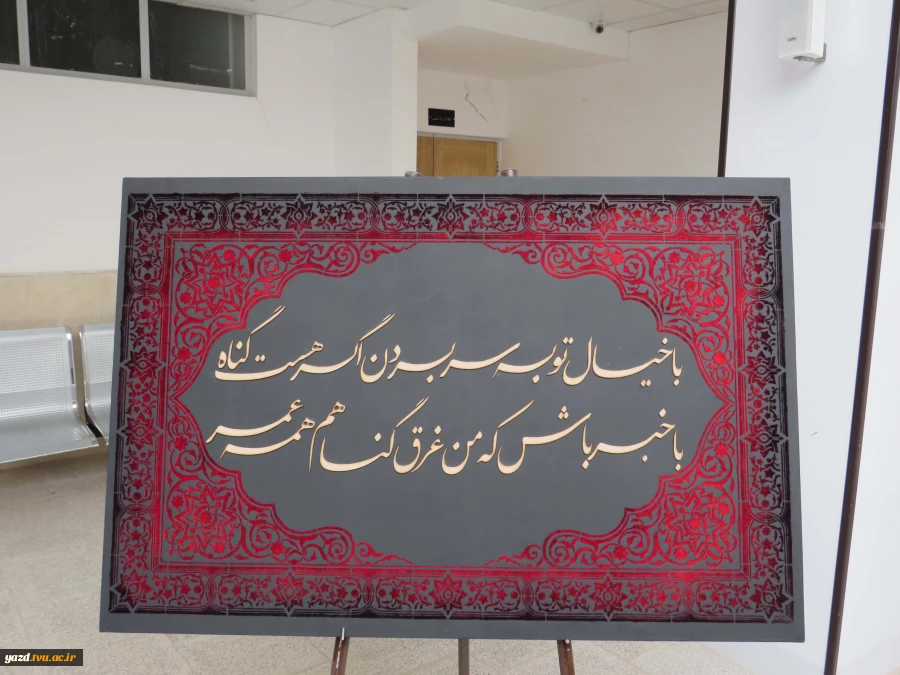 با خیال تو به سر بردن اگر هست گناه
با خبر باش که من غرق گناهم همه عمر
yazd.tvu.ac.ir